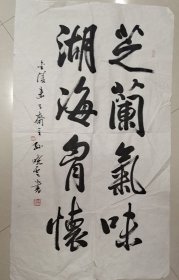 芝蘭氣味
湖海胸懷
金陵